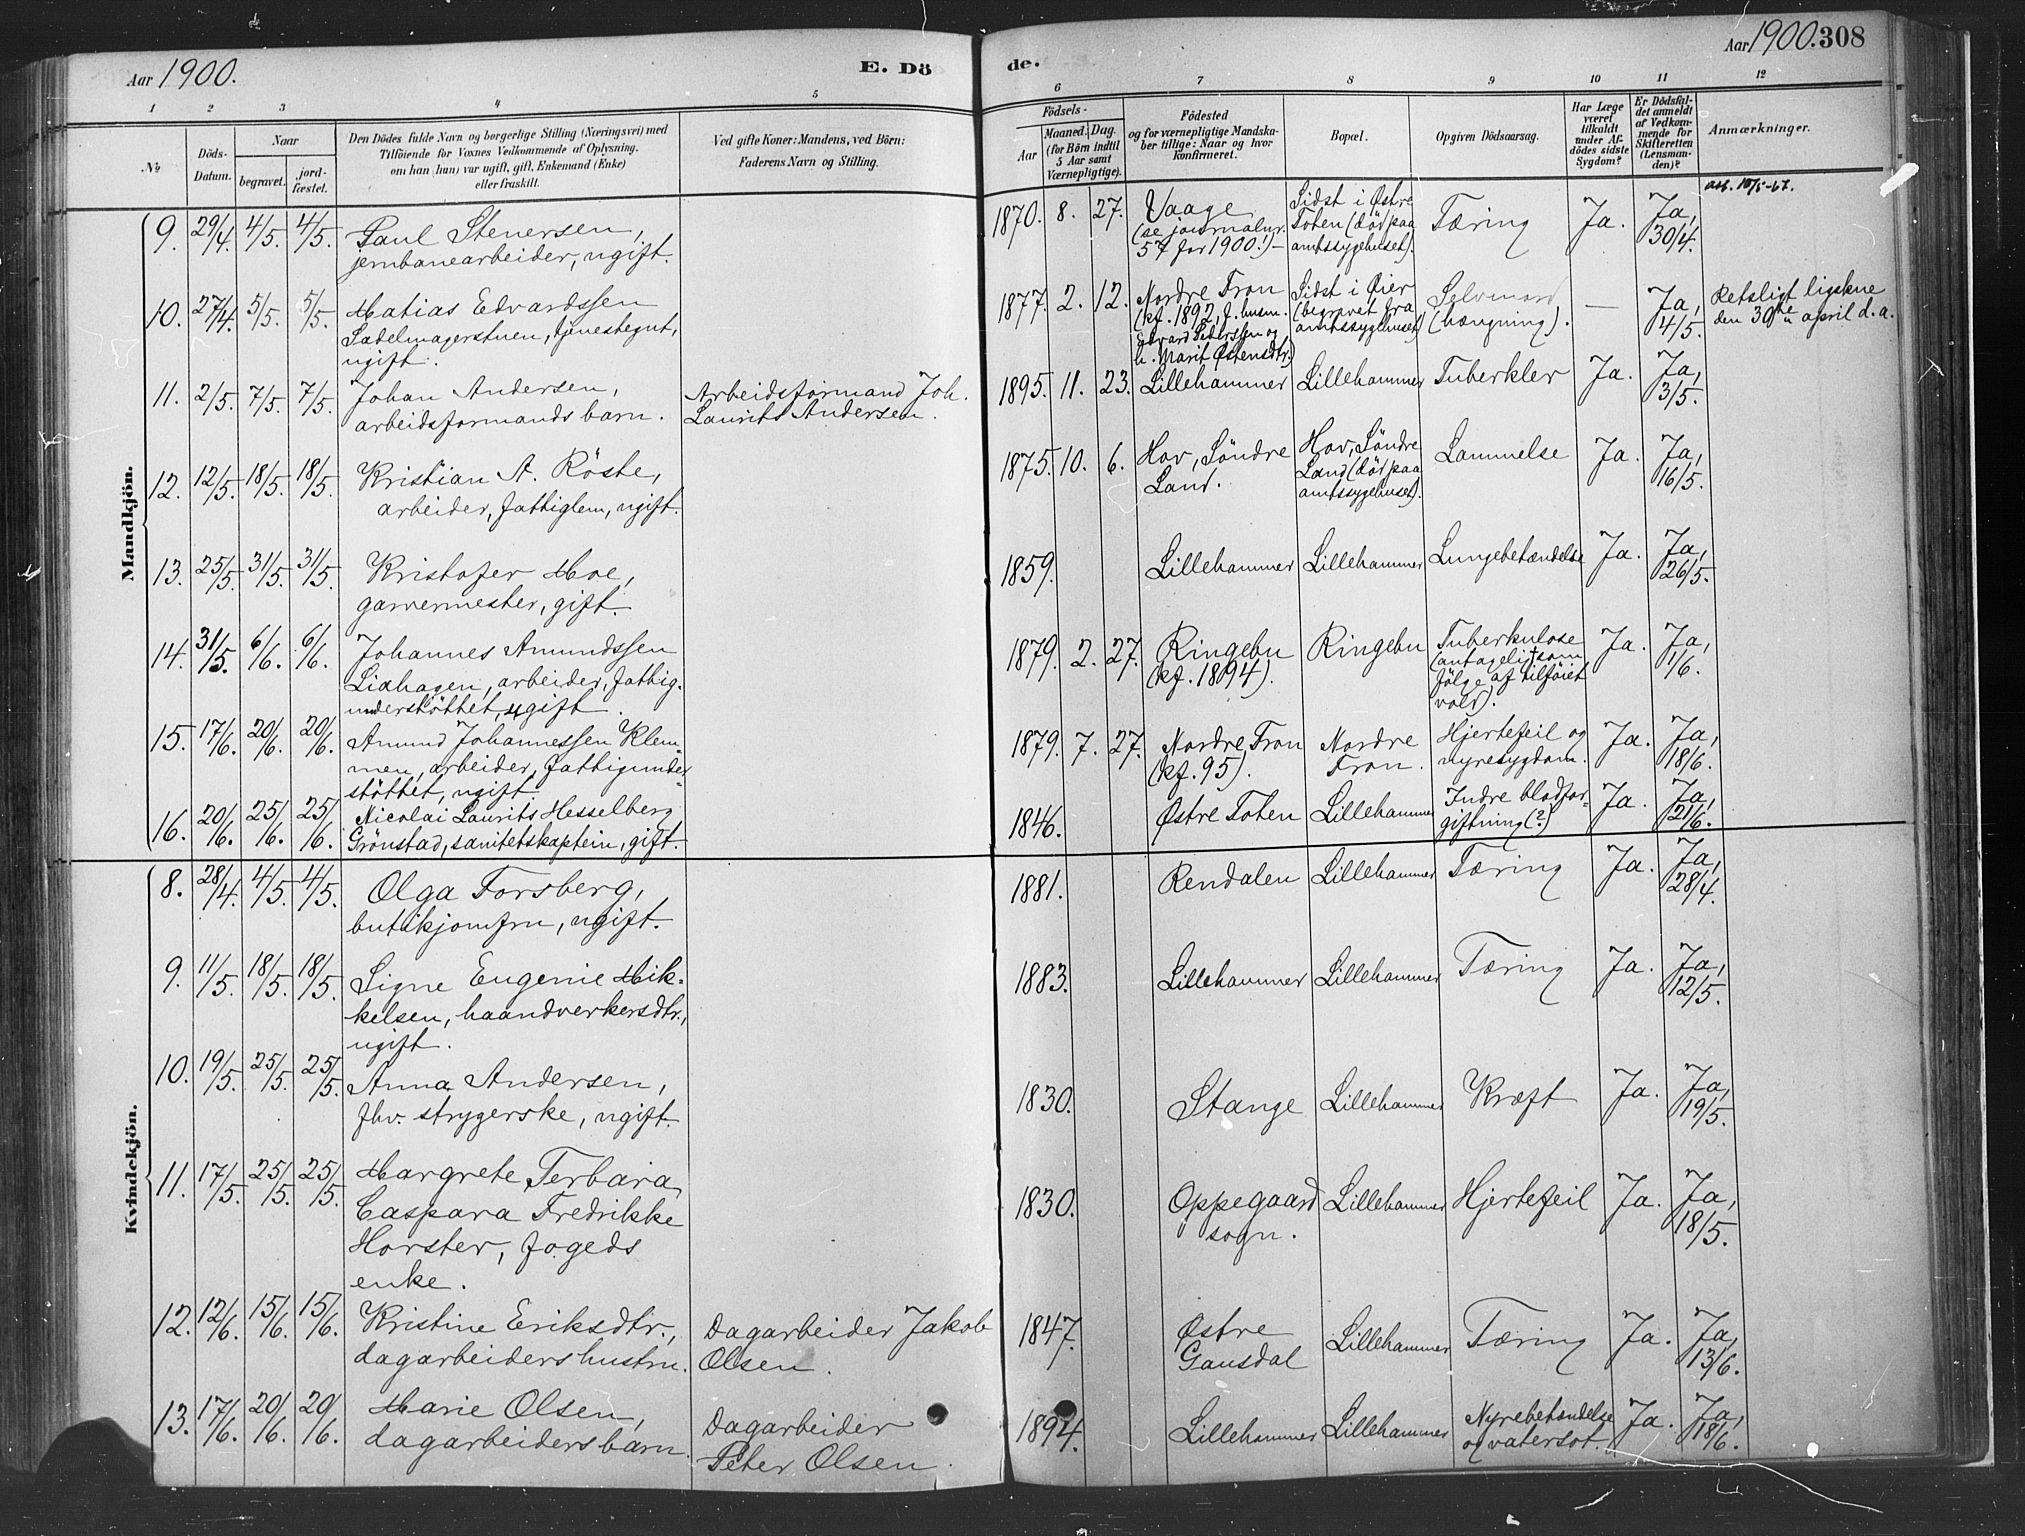 Aar 1900.
E. Dö
de.
Aar 1900. 308
1 2 3 4 5 6 7 8 9 10 11 12
No
Döds-
Datum.
Naar
begravet.
jord-
fæstet.
Den Dödes fulde Navn og borgerlige Stilling (Næringsvei) med
Tilföiende for Voxnes Vedkommende af Oplysning,
om han (hun) var ugift, gift, Enkemand (Enke)
eller fraskilt.
Ved gifte Koner: Mandens, ved Börn:
Faderens Navn og Stilling.
Födsels-
Aar
Maaned. Dag.
(for Börn indtil
5 Aar samt
Værnepligtige).
Födested
og for værnepligtige Mandska-
ber tillige: Naar og hvor
konfirmeret.
Bopæl.
Opgiven Dödsaarsag.
Har Læge
været
tilkaldt
under Af-
dödes sidste
Sygdom?
Er Dödsfal-
det anmeldt
af Vedkom-
mende for
Skifteretten
(Lensman-
den)?
Anmærkninger.
Mandkjön.
9. 29/4. 4/5. 4/5. Paul Stenersen,
jernbanearbeider, ugift.
1870. 8. 27. Vaage
(se journalnr.
57 for 1900.)-
Sidst i Østre
Toten (død paa
amtssygehuset).
Tæring Ja. Ja,
30/4.
10. 27/4. 5/5. 5/5. Matias Edvardssen
Sadelmagerstuen, tjenestegut,
ugift.
1877. 2. 12. Nordre Fron
(kf. 1892, f. husm.
Edvard Pederssen og
h. Marit Østensdtr.)
Sidst i Øier
(begravet fra
amtssygehuset)
Selvmord
(hængning).
— Ja,
4/5.
Retsligt ligskue
den 30te april d. a.
11. 2/5. 7/5. 7/5. Johan Andersen,
arbeidsformands barn.
Arbeidsformand Joh.
Laurits Andersen.
1895. 11. 23. Lillehammer Lillehammer Tuberkler Ja. Ja,
3/5.
12. 12/5. 18/5. 18/5. Kristian A. Röste,
arbeider, fattiglem, ugift.
1875. 10. 6. Hov, Söndre
Land.
Hov, Söndre
Land (død paa
amtssygehuset).
Lammelse Ja. Ja,
16/5.
13. 25/5. 31/5. 31/5. Kristofer Moe,
garvermester, gift.
1859. Lillehammer Lillehammer Lungebetændelse Ja. Ja,
26/5.
14. 31/5. 6/6. 6/6. Johannes Amundssen
Liahagen, arbeider, fattig-
understöttet, ugift.
1879. 2. 27. Ringebu
(kf. 1894).
Ringebu Tuberkulose
(antagelig som
fölge af tilföiet
vold).
Ja. Ja,
1/6.
15. 17/6. 20/6. 20/6. Amund Johannessen Klem-
men, arbeider, fattigunder-
stöttet, ugift
1879. 7. 27. Nordre Fron
(kf. 95).
Nordre
Fron.
Hjertefeil og
nyresygdom.
Ja. Ja,
18/6.
16. 20/6. 25/6. 25/6. Nicolai Laurits Hesselberg
Grönstad, sanitetskaptein, gift.
1846. Østre Toten Lillehammer Indre blodfor-
giftning (?)
Ja. Ja,
21/6.
Kvindekjön.
8. 28/4. 4/5. 4/5. Olga Forsberg,
butikjomfru, ugift.
1881. Rendalen Lillehammer Tæring Ja. Ja,
28/4.
9. 11/5. 18/5. 18/5. Signe Eugenie Mik-
kelsen, haandverkersdtr.,
ugift.
1883. Lillehammer Lillehammer Tæring Ja. Ja,
12/5.
10. 19/5. 25/5. 25/5. Anna Andersen,
fhv. strygerske, ugift.
1830. Stange Lillehammer Kræft Ja. Ja,
19/5.
11. 17/5. 25/5. 25/5. Margrete
Caspara Fredrikke
Horster, fogeds
enke.
1830. Oppegaard
sogn.
Lillehammer Hjertefeil Ja. Ja,
18/5.
12. 12/6. 15/6. 15/6. Kristine Eriksdtr.,
dagarbeiders hustru.
Dagarbeider Jakob
Olsen.
1847. Østre
Gausdal
Lillehammer Tæring Ja. Ja,
13/6.
13. 17/6. 20/6. 20/6. Marie Olsen,
dagarbeiders barn.
Dagarbeider
Peter Olsen.
1894. Lillehammer Lillehammer Nyrebetændelse
og vatersot.
Ja. Ja,
18/6.